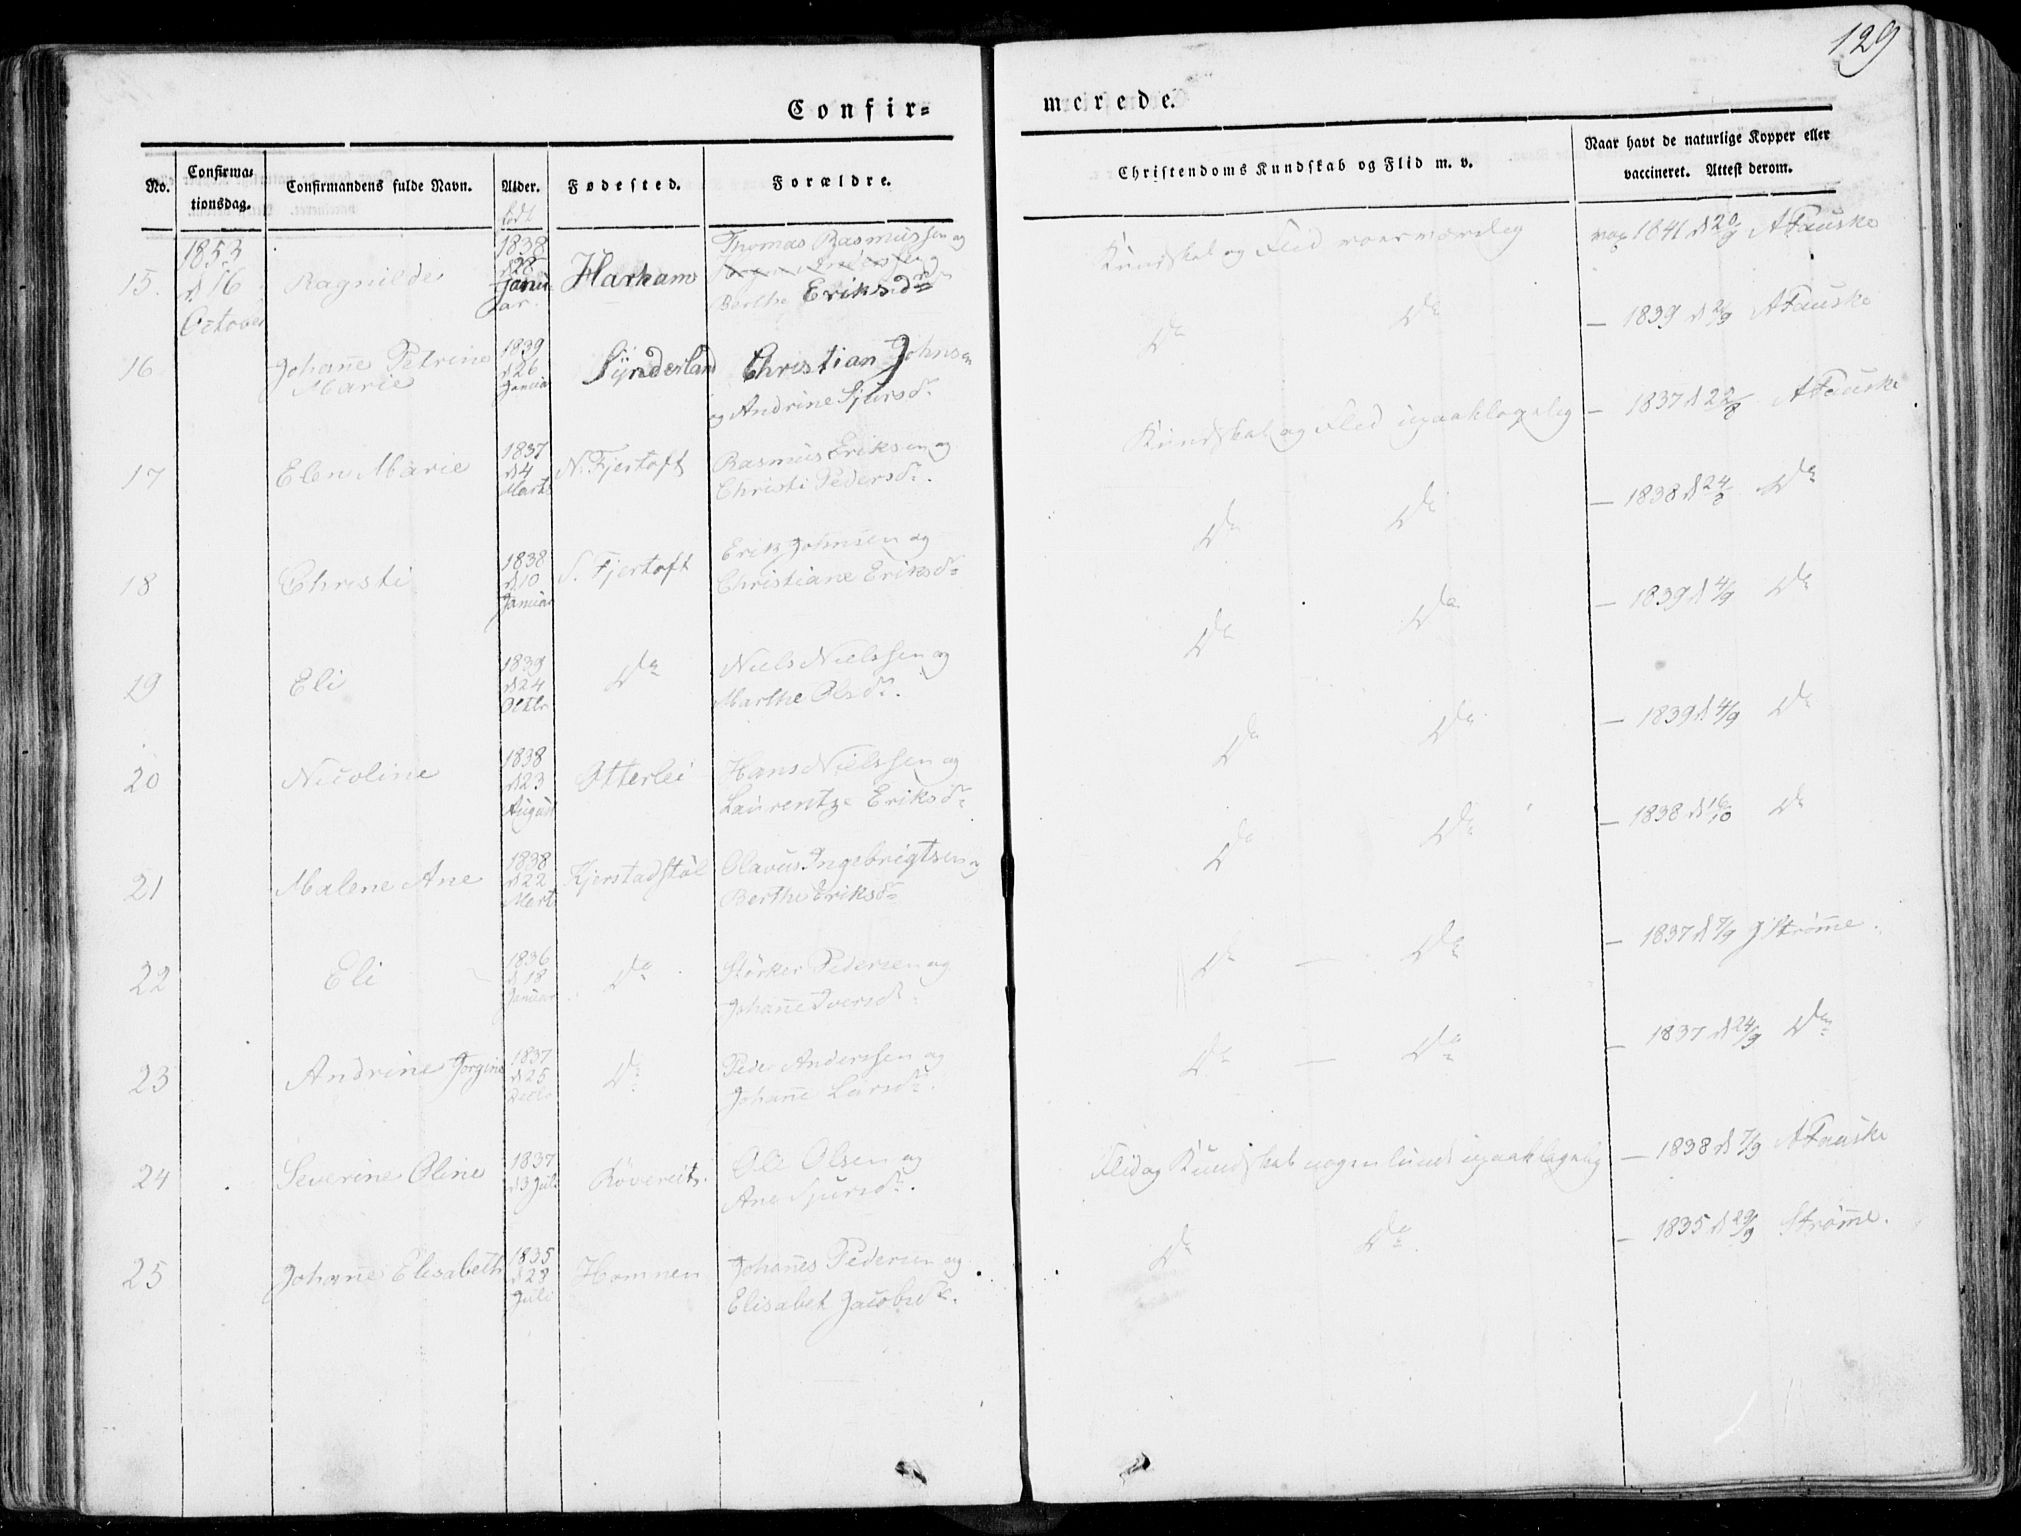 129
Confir=
merede.
No.
Confirma=
tionsdag.
Confirmandens fulde Navn.
Alder.
Fødested.
Forældre.
Christendoms Kundskab og Flid m. v.
Naar havt de naturlige Kopper eller
vaccineret. Attest derom.
født
1853
d 16
October
15.
Ragnilde
1838
d 28
Janu
ar.
Harham
Thomas Rasmussen og
Berthe Eriksdr
Kundskab og Flid roesværdig
vax 1841 d 20/9 AFauske
16
Johañe Petrine
Marie
1839
d 26
Januar
Synderland
Christian Johnsen
og Andrine Sjursdr.
Do
Do
— 1839 d 2/9 AFauske
17
Elen Marie
1837
d 4
Marts
N. Fjertoft
Rasmus Eriksen og
Christi Pedersdr.
Kundskab og Flid upaaklagelig
— 1837 d 22/8 AFauske
18
Christi
1838
d 10
Januar
S. Fjertoft
Erik Johnsen og
Christiane Eriksdr
Do
Do
— 1838 d 24/8 Do
19
Eli
1839
d 24
Octbr
Do
Niels Nielssen og
Marthe Olsdr.
Do
Do
— 1839 d 4/9 Do
20
Nicoline
1838
d 23
August
Otterlei
Hans Nielssen og
Laurentze Eriksdr
Do
Do
— 1839 d 4/9 Do
21
Malene Ane
1838
d 22
Mart
Kjerstadstøl
Olavus Ingebrigtsen og
Berthe Eriksdr
Do
Do
— 1838 d 16/10 Do
22
Eli
1836
d 18
Januar
Do
Størker Pedersen og
Johañe Iversdr
Do — Do
— 1837 d 8/9 J Strøm̃e.
23
Andrine Jorgine
1837
d 25
Decbr
Do
Peder Anderssen og
Johañe Larsdr.
Do — Do
— 1837 d 24/9 Do
24
Severine Oline
1837
d 3 Juli
Røvereit.
Ole Olsen og
Ane Sjursdr.
Flid og Kundskab nogenlunde upaaklagelig
— 1838 d 7/9 AFauske
25
Johañe Elisabeth
1835
d 28
Juli
Hamnen
Johañes Pedersen og
Elisabet Jacobsdr.
Do
Do.
— 1835 d 29/9 Strøm̃e.